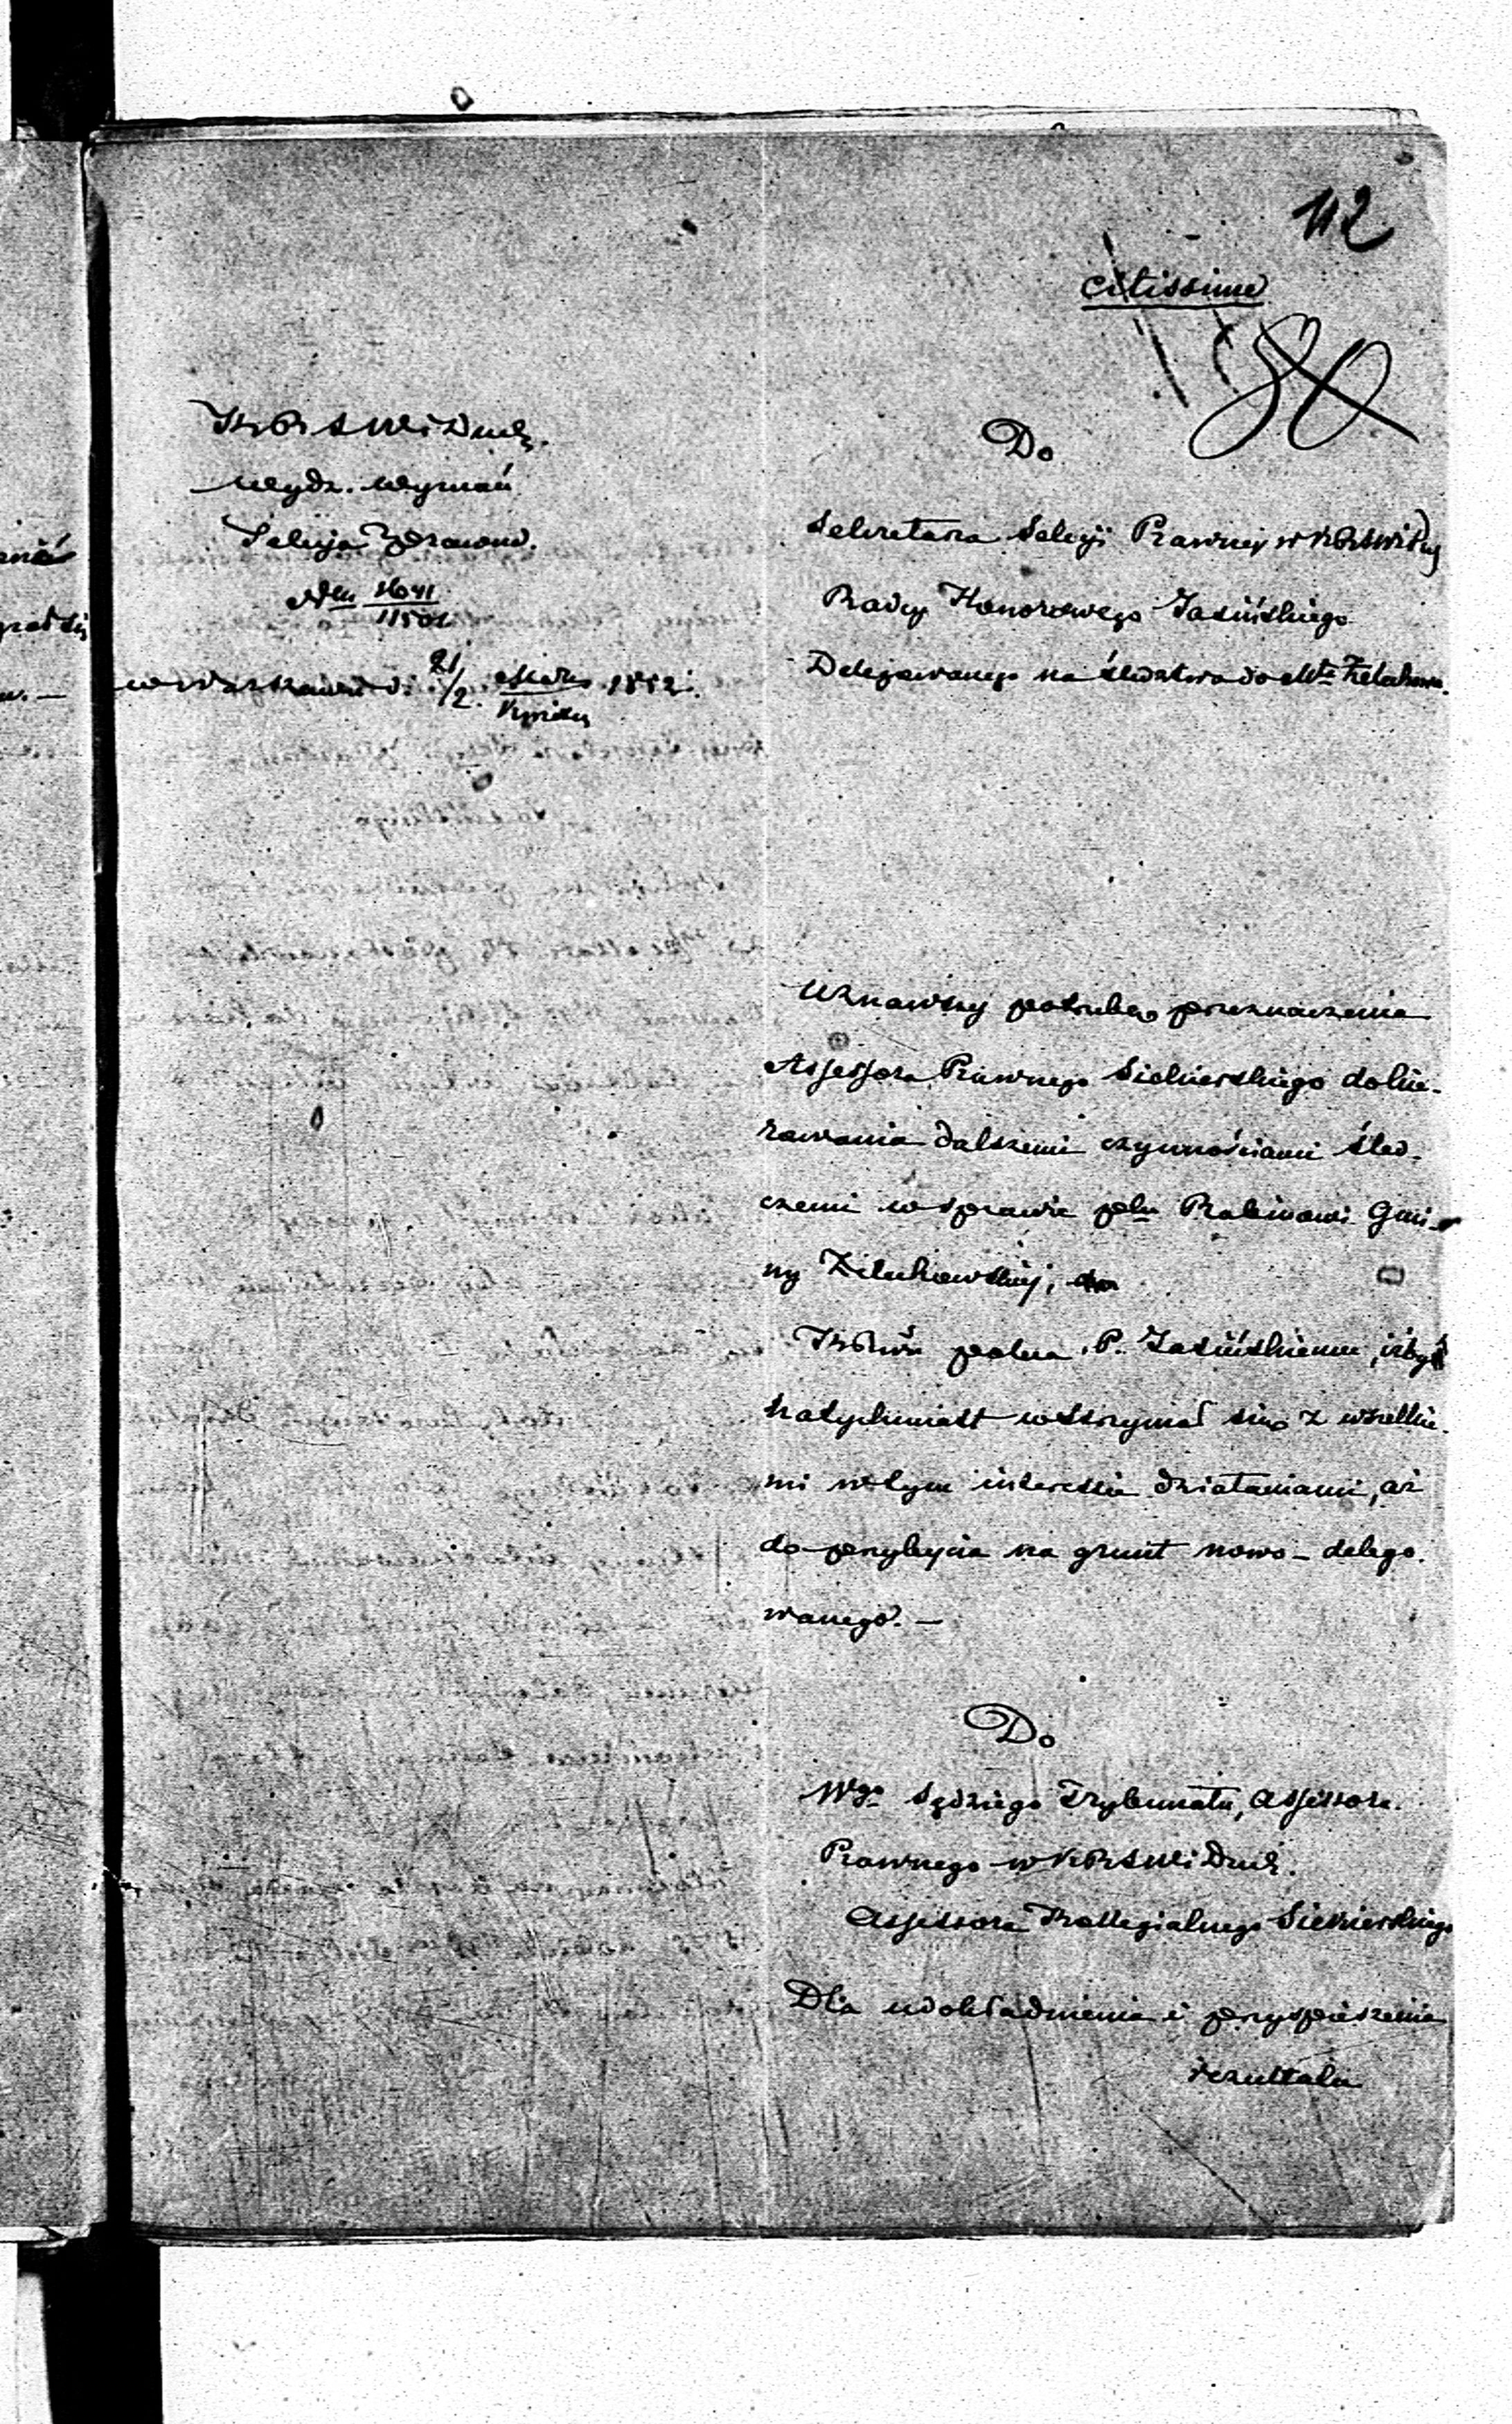 112
citissime
KRSWiDuch.
Wydz. Wyznań
Sekcja
w Warszawie d. 21/2. Marca 1852 r.
Kwietn
Do
Sekretarza Sekcyi Prawnej w KRSWiD
Radcy Honorowego Jasińskiego
Delegowanego na śledztwo do Mta Żelechowa.
Uznawszy potrzebę przeznaczenia
Assessora Prawnego Siekierskiego do kie-
rowania dalszemi czynnościami śled-
czemi w sprawie pko Rabinowi Gmi-
ny Żelechowskiej,
poleca P. Jasińskiemu, iżby
natychmiast wstrzymał się z wszelkie-
mi w tym interessie działaniami, aż
do przybycia na grunt nowo-delego-
wanego. —
Do
Wgo Sędziego Trybunału, Assessora
Prawnego w KRSWiDuch.
Assessora Kollegialnego Siekierskiego
Dla udokładnienia i przyspieszenia
rezultatu